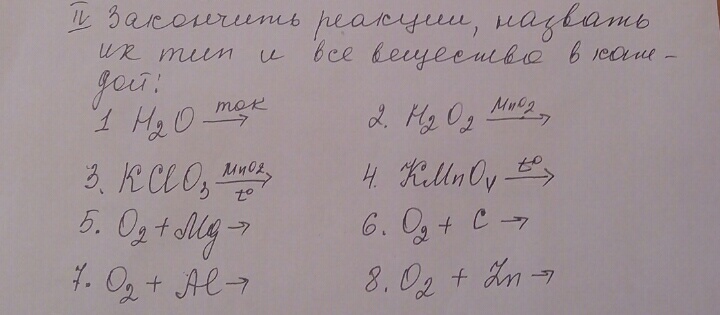 IV Закончить реакции, назвать
их тип и все вещества в каж-
дой:
1 H₂O ток→ 2. H₂O₂ MnO₂→
3. KClO₃ MnO₂ t°→ 4. KMnO₄ t°→
5. O₂ + Mg → 6. O₂ + C →
7. O₂ + Al → 8. O₂ + Zn →